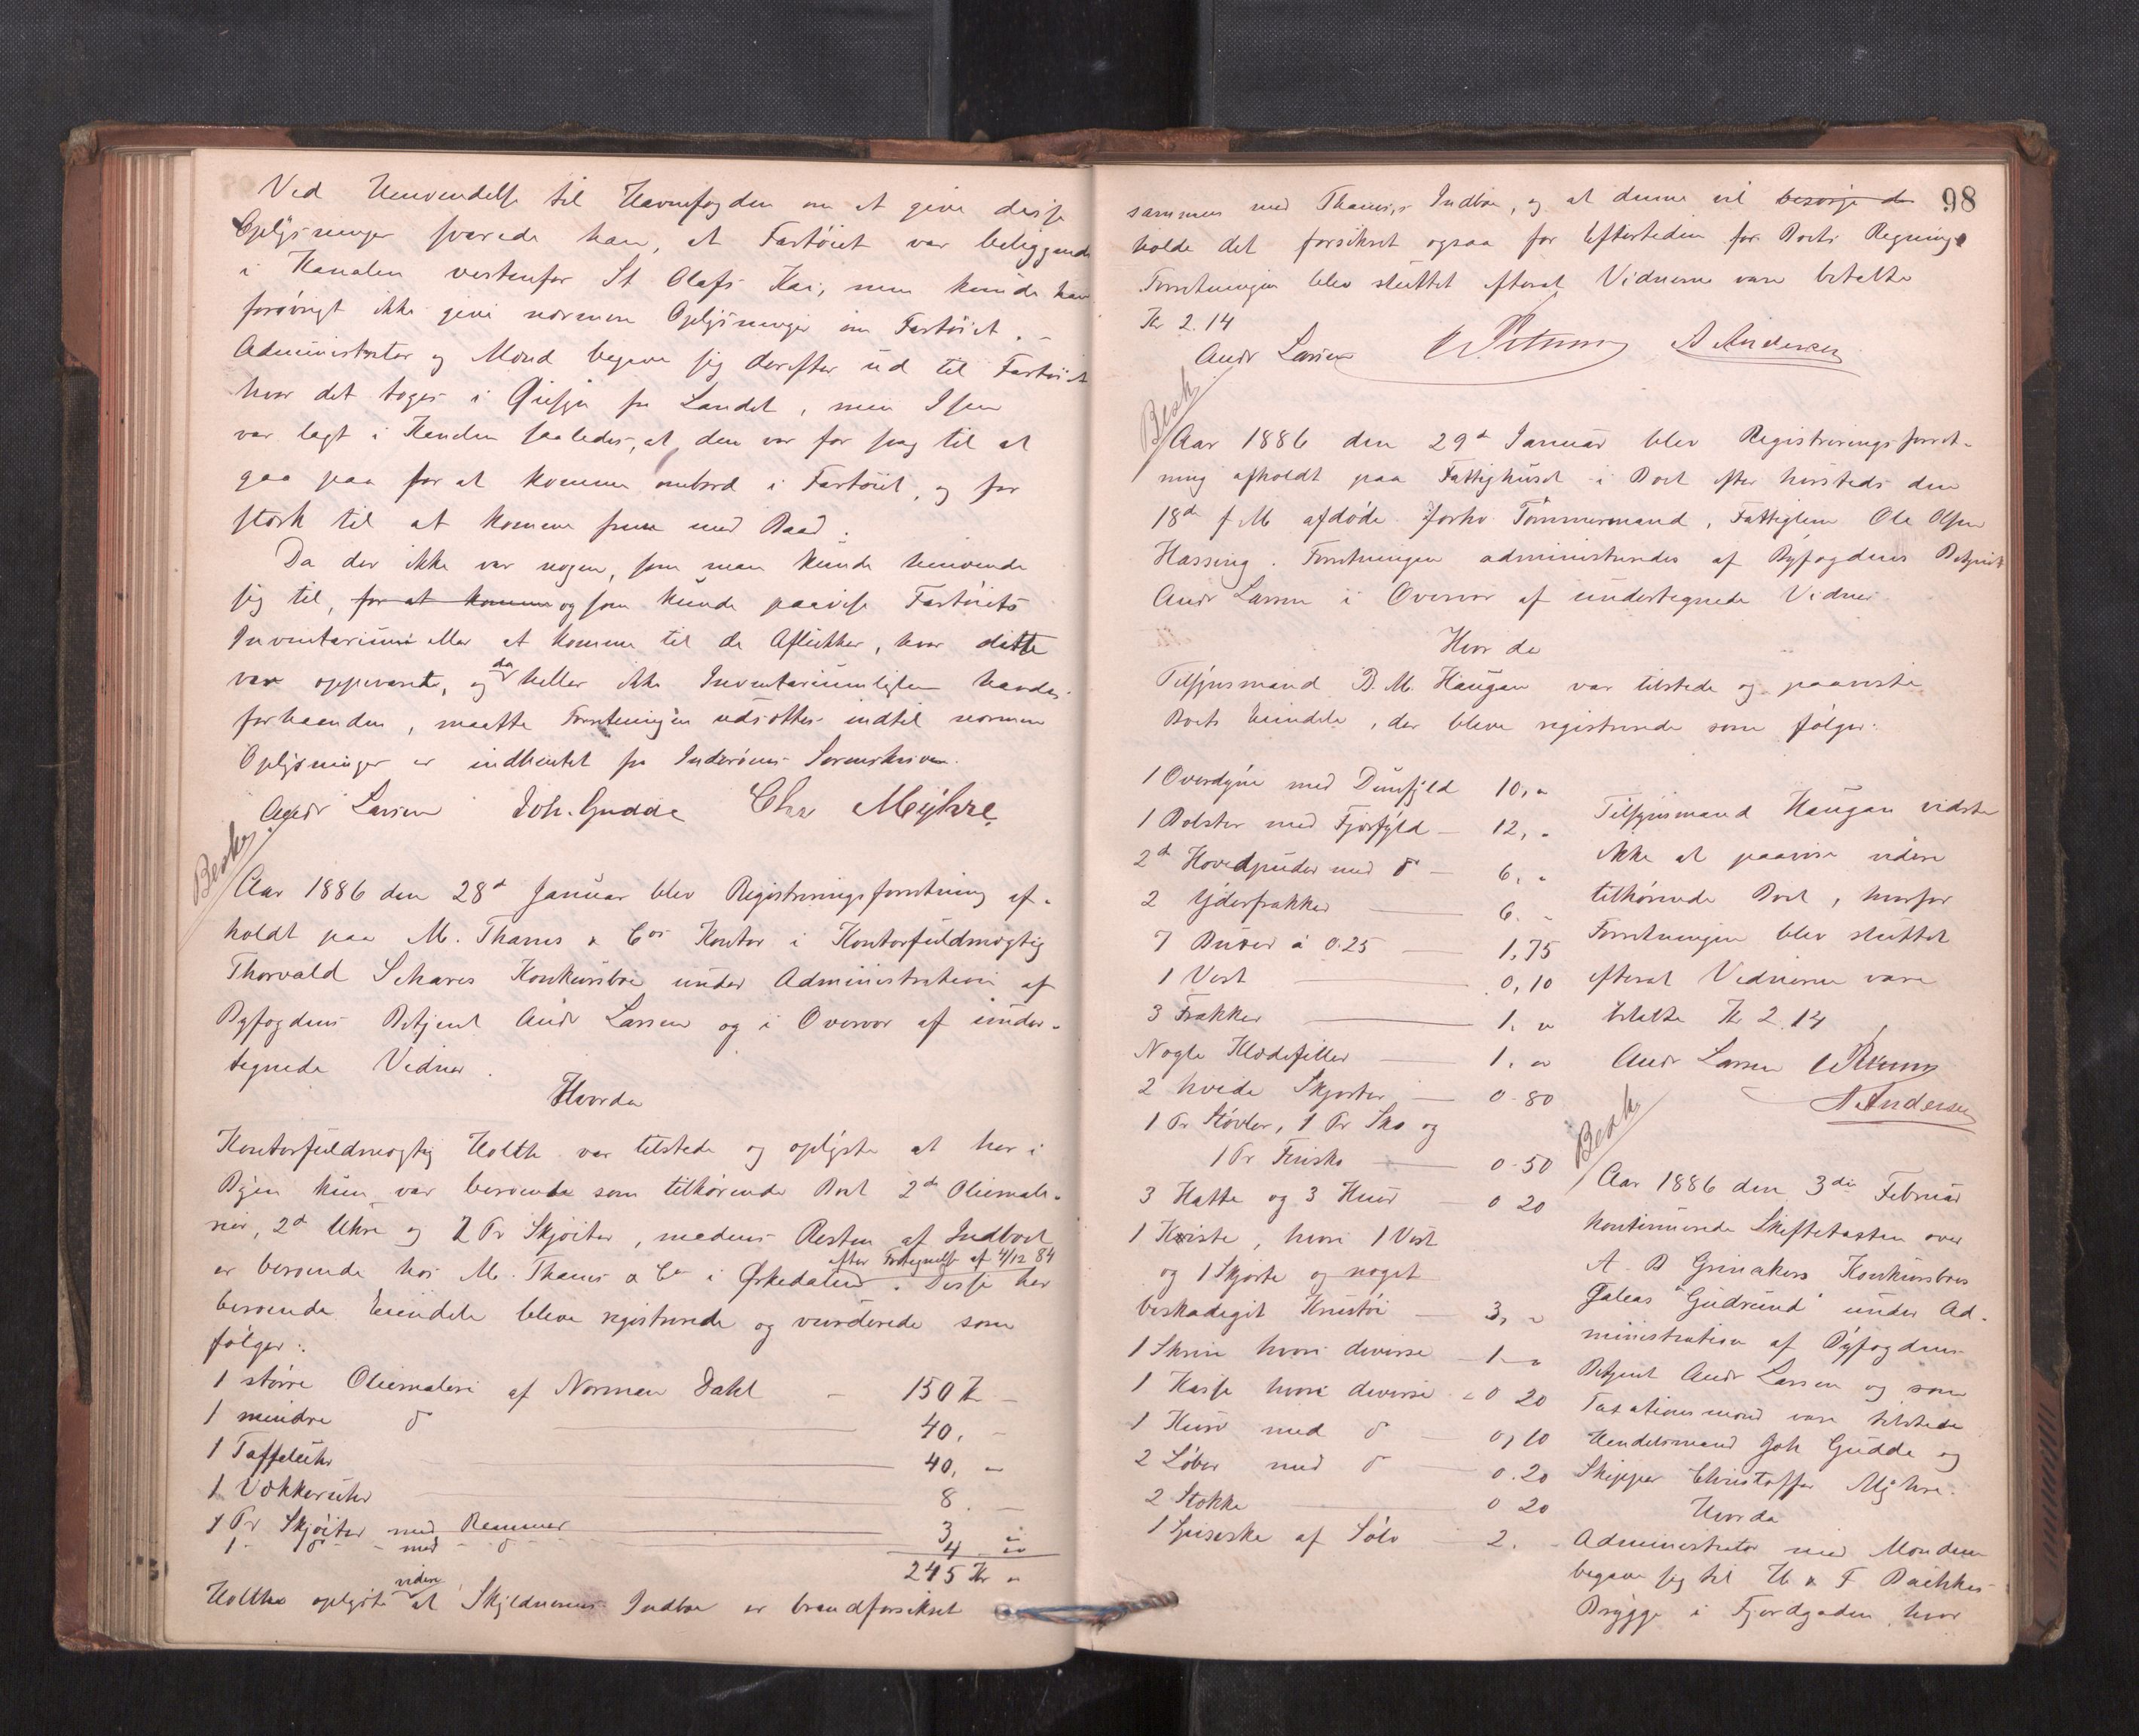 Ved Henvendelse til Havnefogden om at give disse
Oplysninger svarede han, at Fartöiet var beliggende
i Kanalen vestenfor St Olafs Kai, men kunde han
forövrigt ikke give nærmere Oplysninger om Fartöiet. –
Administrator og Mænd begave sig derefter ud til Fartöiet
hvor det toges i Öiesyn fra Landet, men Isen
var lagt i Kanalen saaledes, at den var for svag til at
gaa paa for at komme ombord i Fartöiet, og for
stærk til at komme frem med Baad.
Da der ikke var nogen, som man kunde henvende
sig til, for at komme og som kunde paavise Fartöiets
Inventarium eller at komme til de Aflukker, hvor dette
var oppevaret, og da heller ikke Inventariumlisten havdes
forhaanden, maatte Forretningen udsættes indtil nærmere
Oplysninger er indhentet fra Inderöens Sorenskriver.
Andr Larsen Joh. Gudde Chr Mÿhre
Besk
Aar 1886 den 28d Januar blev Registreringsforretning af-
holdt paa M. Thams & Cos Kontor i Kontorfuldmægtig
Thorvald Schares Konkursbo under Administration af
Byfogdens Betjent Andr Larsen og i Overvær af under-
tegnede Vidner.
Hvorda
Kontorfuldmægtig Holthe var tilstede og oplyste at her i
Byen kun var beroende som tilhörende Boet 2d Oliemale-
rier, 2d Uhre og 2 Pr Skjöiter, medens Resten af Indboet
er beroende hos M. Thams & Co i Ørkedalen efter Fortegnelse af 4/12 84. Disse her
beroende Eiendele bleve registrerede og vurderede som
fölger:
1 större Oliemaleri af Norman Dahl – 150 Kr –
1 mindre do 40, –
1 Taffeluhr 40, –
1 Vækkeruhr 8. –
1 Pr Skjöiter med Remmer 3 "
1 – do – med – do 4 "
245 Kr "
Holthe oplyste videre at Skyldnerens Indbo er brandforsikret
98
sammen med Thams,s Indbo, og at denne vil besörge de
holde det forsikret ogsaa for Eftertiden for Boets Regning
Forretningen blev sluttet efterat Vidnerne vare betalte
Kr 2.14
Andr Larsen A Andersen
Besk
Aar 1886 den 29d Januar blev Registreringsforret-
ning afholdt paa Fattighuset i Boet efter hersteds den
18d f M afdöde forhv Tömmermand, Fattiglem Ole Olsen
Hassing. Forretningen administreredes af Byfogdens Betjent
Andr Larsen i Overvær af undertegnede Vidner.
Hvor da
Tilsynsmand B. M. Haugan var tilstede og paaviste
Boets Eiendele, der bleve registrerede som fölger:
1 Overdyne med Dunfyld 10, "
1 Bolster med Fjærfyld – 12, "
2d Hovedpuder med do – 6, "
2 Yderfrakker 6. –
7 Buxer á 0.25 1,75
1 Vest 0,10
3 Frakker 1. "
Nogle Klædefiller 1. "
2 hvide Skjorter 0-80
1 Pr Stövler, 1 Pr Sko og
1 Pr Finsko 0-50
3 Hatte og 3 Huer 0 20
1 Kiste, hvori 1 Vest
og 1 Skjorte og noget
beskadiget Krustöi 3, "
1 Skrin hvori diverse – 1 – "
1 Kasse hvori diverse 0 20
1 Kurv med do 0,10
2 Löber med do 0.20
2 Stokke 0 20
1 Spiseske af Sölv 2. –
Tilsynsmand Haugan vidste
ikke at paavise videre
tilhörende Boet, hvorfor
Forretningen blev sluttet
efterat Vidnerne vare
betalte Kr 2.14
Andr Larsen
A Andersen
Besk
Aar 1886 den 3die Februar
kontinuerede Skifteretten over
A. B Grinakers Konkursboes
Galeas "Gudrund" under Ad-
ministration af Byfogdens
Betjent Andr Larsen og som
Taxationsmænd vare tilstede
Handelsmand Joh Gudde og
Skipper Christoffer Myhre.
Hvorda
Administrator med Mændene
begave sig til H & F Bachkes
Brygge i Fjordgaden hvor